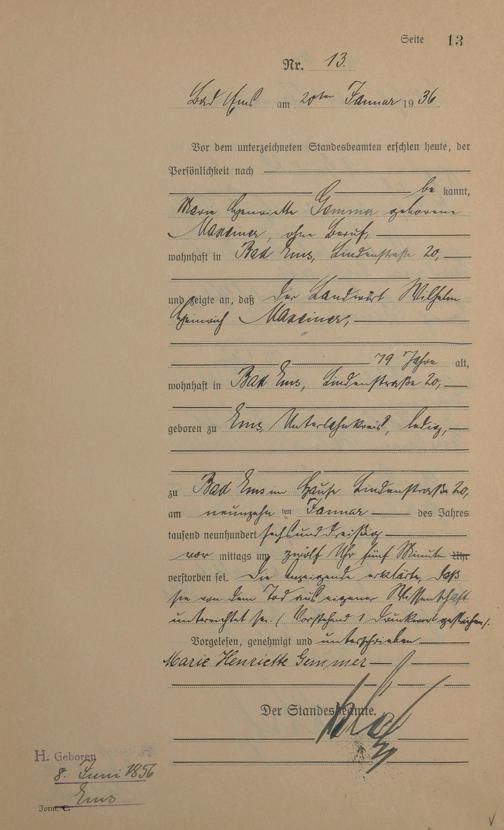 Seite 13
Nr. 13.
Bad Ems am 20ten Januar 1936
Vor dem unterzeichneten Standesbeamten erschien heute, der
Persönlichkeit nach
be kannt,
Marie Henriette Gemmer geborene
, ohne Beruf,
wohnhaft in Bad Ems, Lindenstraße 20,
und zeigte an, daß der Landwirt Wilhelm
Heinrich
79 Jahre alt,
wohnhaft in Bad Ems, Lindenstraße 20,
geboren zu Ems Unterlahnkreis, ledig,
zu Bad Ems im Hause Lindenstraße 20,
am neunzehn ten Januar des Jahres
tausend neunhundert sechsunddreißig
vor mittags um zwölf Uhr fünf Minute Uhr
verstorben sei. Die Anzeigende erklärte, daß
sie von dem Tod aus eigener Wissenschaft
unterrichtet sei. (Vorstehend 1 Druckwort gestrichen).
Vorgelesen, genehmigt und unterschrieben
Marie Henriette Gemmer
Der Standesbeamte.
H. Geboren
8. Juni 1856
Ems
Form. C.